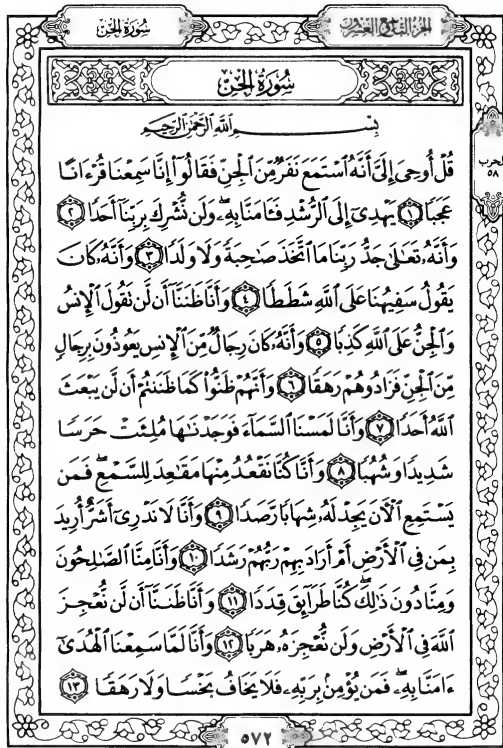 الجزء التاسع والعشرون سورة الجن
سُورَةُ الْجِنِّ
بِسْمِ اللَّهِ الرَّحْمَٰنِ الرَّحِيمِ
حزب
٥٨
قُلْ أُوحِيَ إِلَيَّ أَنَّهُ ٱسْتَمَعَ نَفَرٌ مِّنَ ٱلْجِنِّ فَقَالُوٓا۟ إِنَّا سَمِعْنَا قُرْءَانًا
عَجَبًا ١ يَهْدِىٓ إِلَى ٱلرُّشْدِ فَـَٔامَنَّا بِهِۦ ۖ وَلَن نُّشْرِكَ بِرَبِّنَآ أَحَدًا ٢
وَأَنَّهُۥ تَعَٰلَىٰ جَدُّ رَبِّنَا مَا ٱتَّخَذَ صَٰحِبَةً وَلَا وَلَدًا ٣ وَأَنَّهُۥ كَانَ
يَقُولُ سَفِيهُنَا عَلَى ٱللَّهِ شَطَطًا ٤ وَأَنَّا ظَنَنَّآ أَن لَّن نَقُولَ ٱلْإِنسُ
وَٱلْجِنُّ عَلَى ٱللَّهِ كَذِبًا ٥ وَأَنَّهُۥ كَانَ رِجَالٌ مِّنَ ٱلْإِنسِ يَعُوذُونَ بِرِجَالٍ
مِّنَ ٱلْجِنِّ فَزَادُوهُمْ رَهَقًا ٦ وَأَنَّهُمْ ظَنُّوا۟ كَمَا ظَنَنتُمْ أَن لَّن يَبْعَثَ
ٱللَّهُ أَحَدًا ٧ وَأَنَّا لَمَسْنَا ٱلسَّمَآءَ فَوَجَدْنَٰهَا مُلِئَتْ حَرَسًا
شَدِيدًا وَشُهُبًا ٨ وَأَنَّا كُنَّا نَقْعُدُ مِنْهَا مَقَٰعِدَ لِلسَّمْعِ ۖ فَمَن
يَسْتَمِعِ ٱلْـَٔانَ يَجِدْ لَهُۥ شِهَابًا رَّصَدًا ٩ وَأَنَّا لَا نَدْرِىٓ أَشَرٌّ أُرِيدَ
بِمَن فِى ٱلْأَرْضِ أَمْ أَرَادَ بِهِمْ رَبُّهُمْ رَشَدًا ١٠ وَأَنَّا مِنَّا ٱلصَّٰلِحُونَ
وَمِنَّا دُونَ ذَٰلِكَ ۖ كُنَّا طَرَآئِقَ قِدَدًا ١١ وَأَنَّا ظَنَنَّآ أَن لَّن نُّعْجِزَ
ٱللَّهَ فِى ٱلْأَرْضِ وَلَن نُّعْجِزَهُۥ هَرَبًا ١٢ وَأَنَّا لَمَّا سَمِعْنَا ٱلْهُدَىٰٓ
ءَامَنَّا بِهِۦ ۖ فَمَن يُؤْمِنۢ بِرَبِّهِۦ فَلَا يَخَافُ بَخْسًا وَلَا رَهَقًا ١٣
٥٧٢